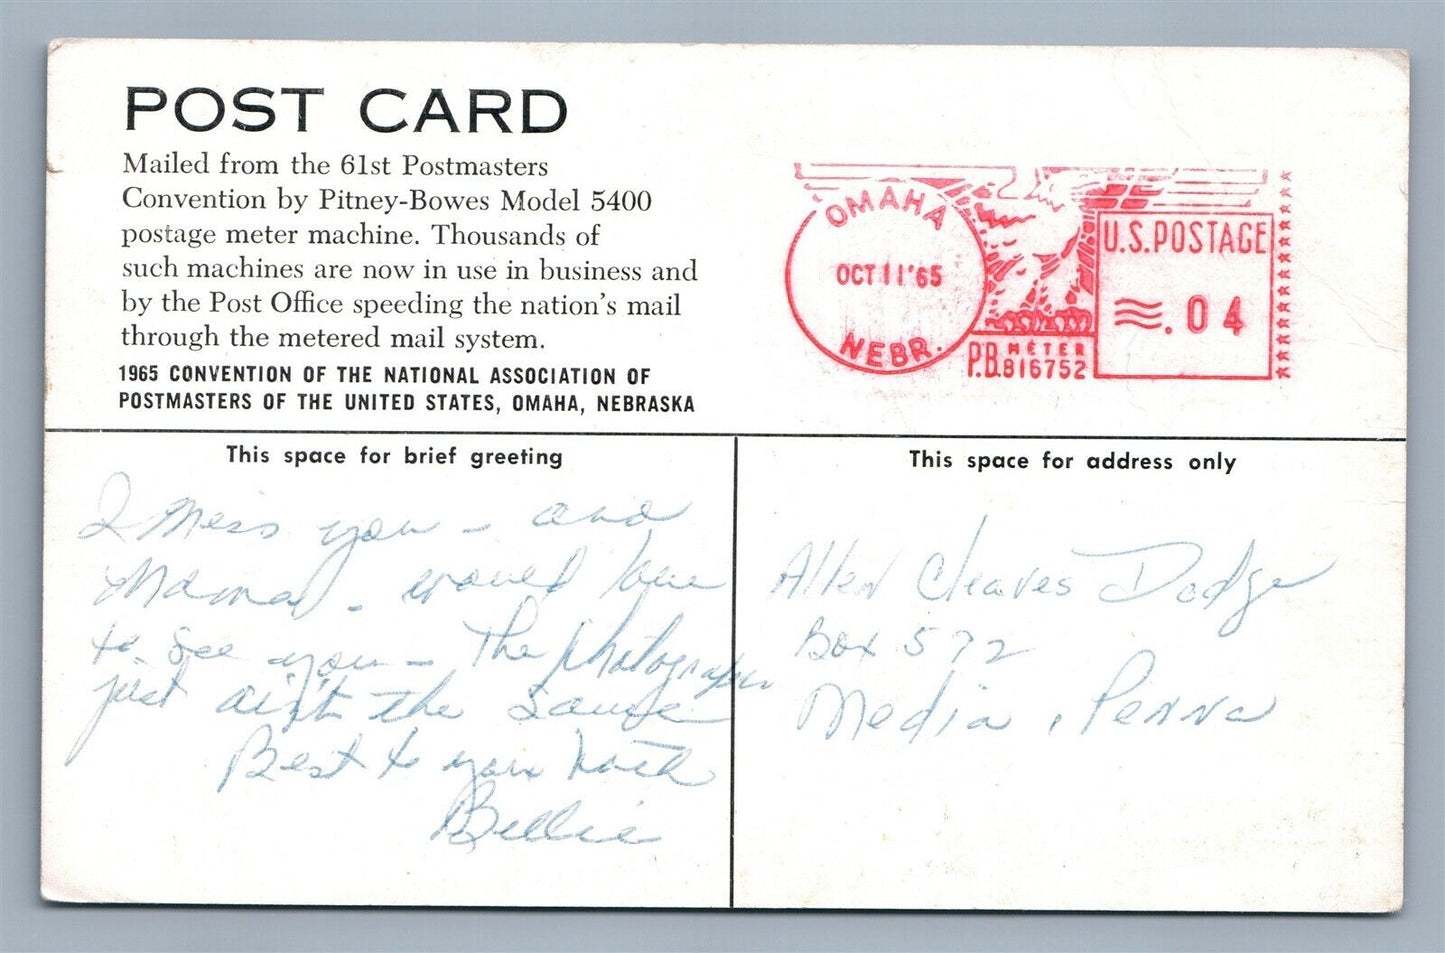 POST CARD
Mailed from the 61st Postmasters
Convention by Pitney-Bowes Model 5400
postage meter machine. Thousands of
such machines are now in use in business and
by the Post Office speeding the nation's mail
through the metered mail system.
1965 CONVENTION OF THE NATIONAL ASSOCIATION OF
POSTMASTERS OF THE UNITED STATES, OMAHA, NEBRASKA
OMAHA
OCT 11 '65
NEBR.
P.B. METER
816752
U.S. POSTAGE
.04
This space for brief greeting
I Miss you - and
would love
to see you - The photographer
just ain't the same
Best to you both
Billie
This space for address only
Allen Cleaves Dodge
Box 572
Media, Penna